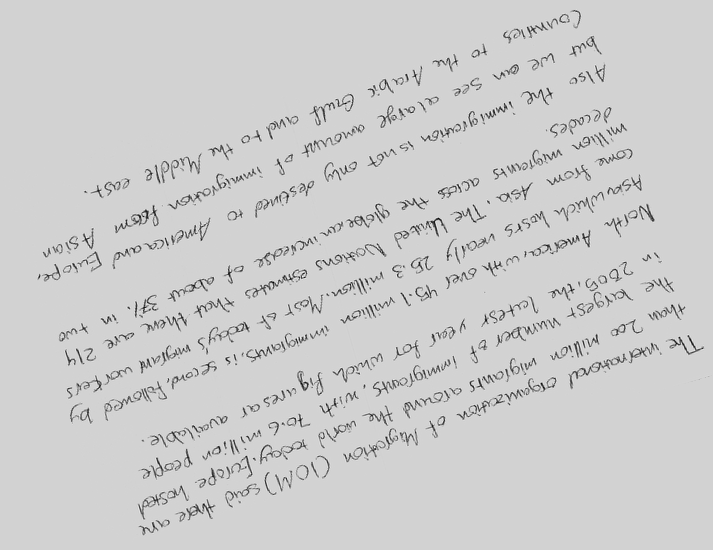 The international organization of Migration (IOM) said there are
than 200 million migrants around the world today. Europe hosted
the largest number of immigrants, with 70.6 million people
in 2005, the latest year for which figures ar available.
North America, with over 45.1 million immigrants, is second, followed by
Asia which hosts nearly 25.3 million. Most of today's migrant workers
come from Asia. The United Nations estimates that there are 214
million migrants across the globe, an increase of about 37% in two
decades.
Also the immigration is not only destined to America and Europe,
but we can see a large amount of immigration from Asian
Countries to the Arabic Gulf and to the Middle east.